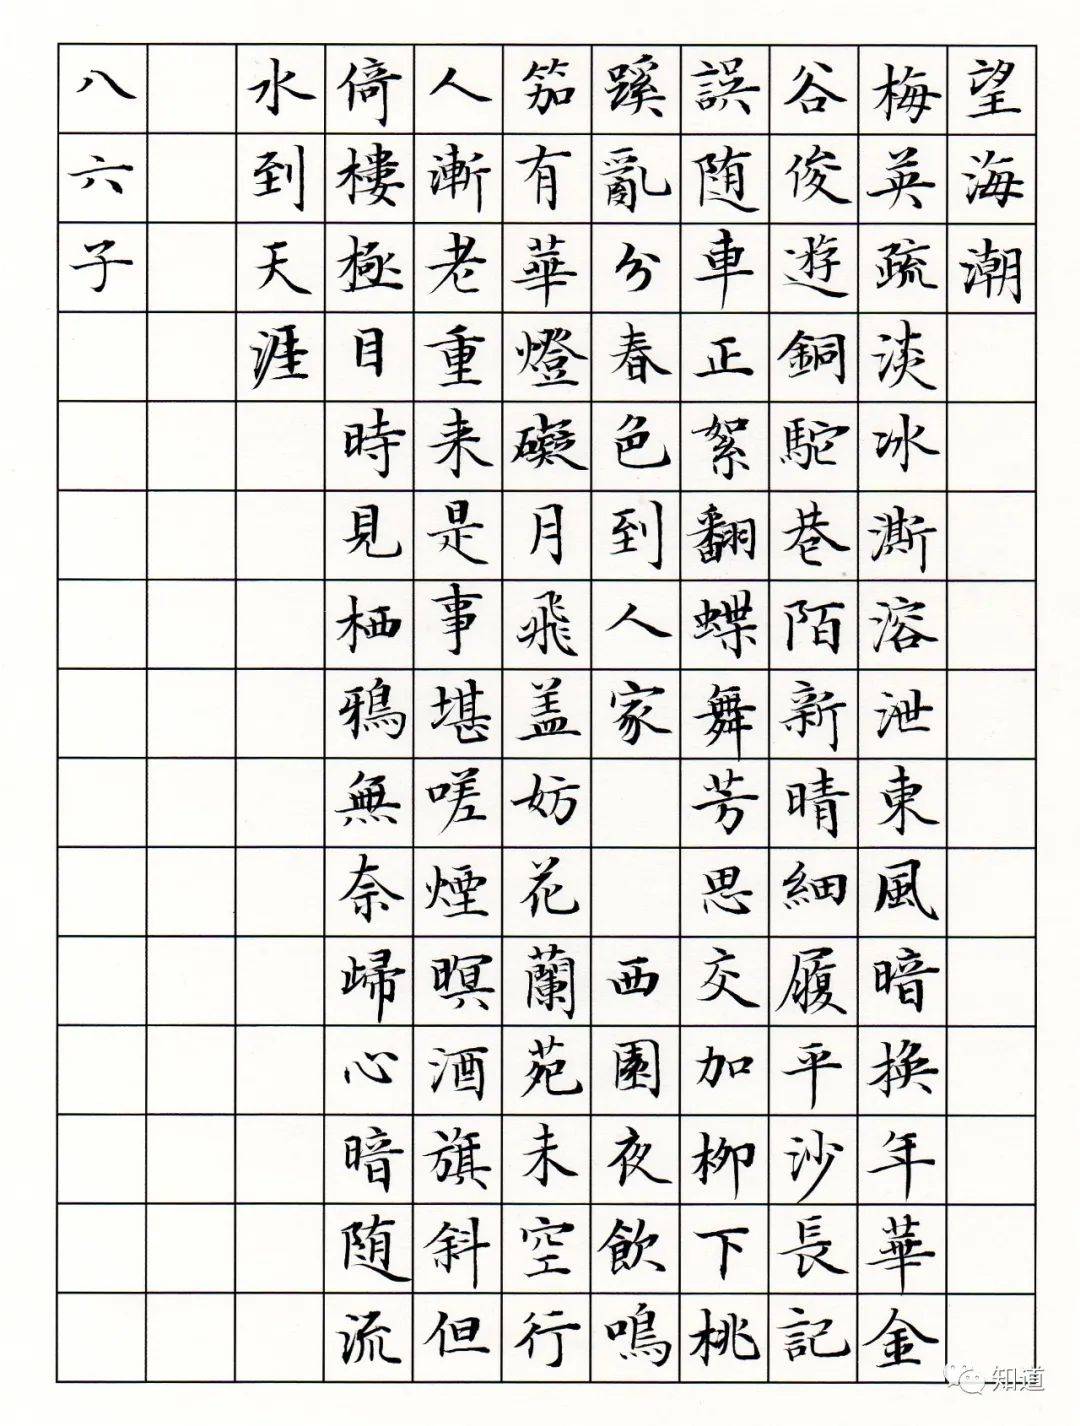 望海潮
梅英疏淡冰澌溶泄東風暗換年華金
谷俊遊銅駝巷陌新晴細履平沙長記
誤随車正絮翻蝶舞芳思交加柳下桃
蹊亂分春色到人家 西園夜飲鳴
笳有華燈礙月飛盖妨花蘭苑未空行
人漸老重来是事堪嗟煙暝酒旗斜但
倚樓極目時見栖鴉無奈歸心暗随流
水到天涯
八六子
知道